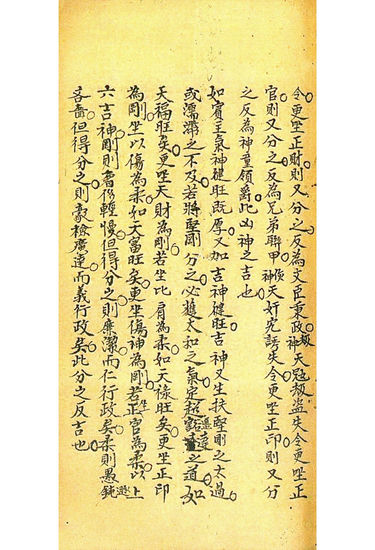 令更坐正財則又分之反為文臣秉政劫神天冠劫盜失令更坐正
官則又分之反為兄弟聯甲使神天奸宄誘失令更坐正印則又分
之反為神童領爵此凶神之吉也
如賓主氣神健旺既厚又加吉神健旺吉神又生扶堅剛之太過
或濡滯之不及若將堅剛分之必獲太和之氣定超遠達之道如
天福旺矣更坐天財為剛若坐比肩為柔如天祿旺矣更坐正印
為剛坐以傷為柔如天富旺矣更坐傷神為剛若坐正官為柔以上
六吉神剛則奢侈輕慢但得分之則廉潔而仁行政矣柔則愚鈍
吝嗇但得分之則豪儉廣達而義行政矣此分之反吉也